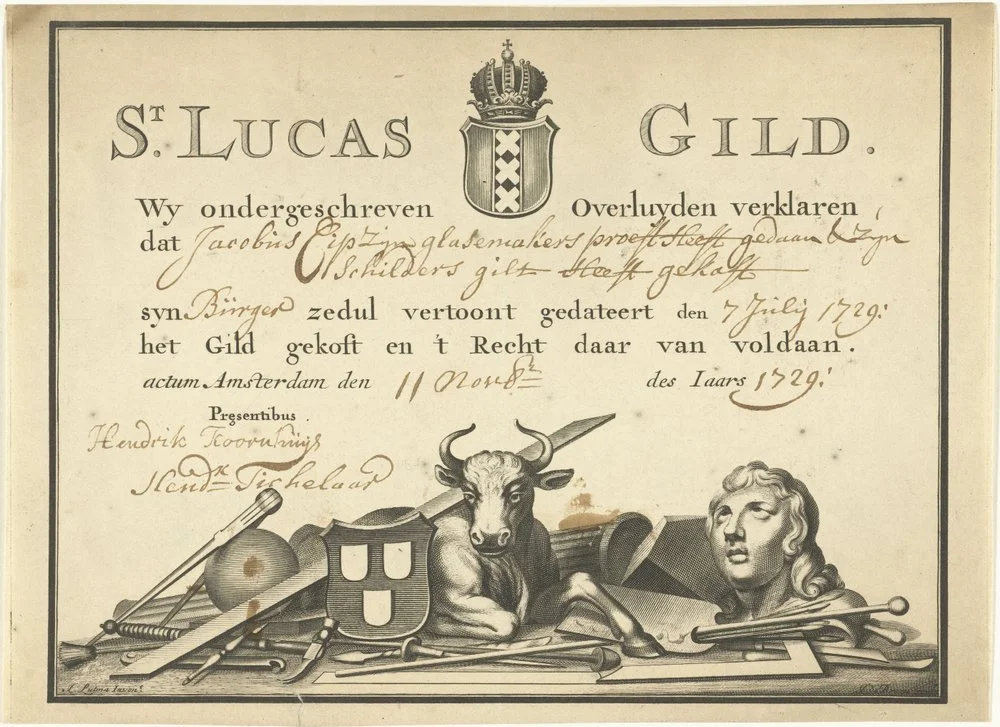 ST. LUCAS GILD.
Wy ondergeschreven Overluyden verklaren
dat Jacobus Eip Zijn glasemakers proeft Heeft gedaan & Zijn
Schilders gilt Heeft gekoft
syn Bürger zedul vertoont gedateert den 7 Julij 1729:
het Gild gekoft en 't Recht daar van voldaan.
actum Amsterdam den 11 Novbr des Iaars 1729:
Præsentibus.
Hendrik Koornhuijs
Hendk Tichelaar
Lutma Inven.